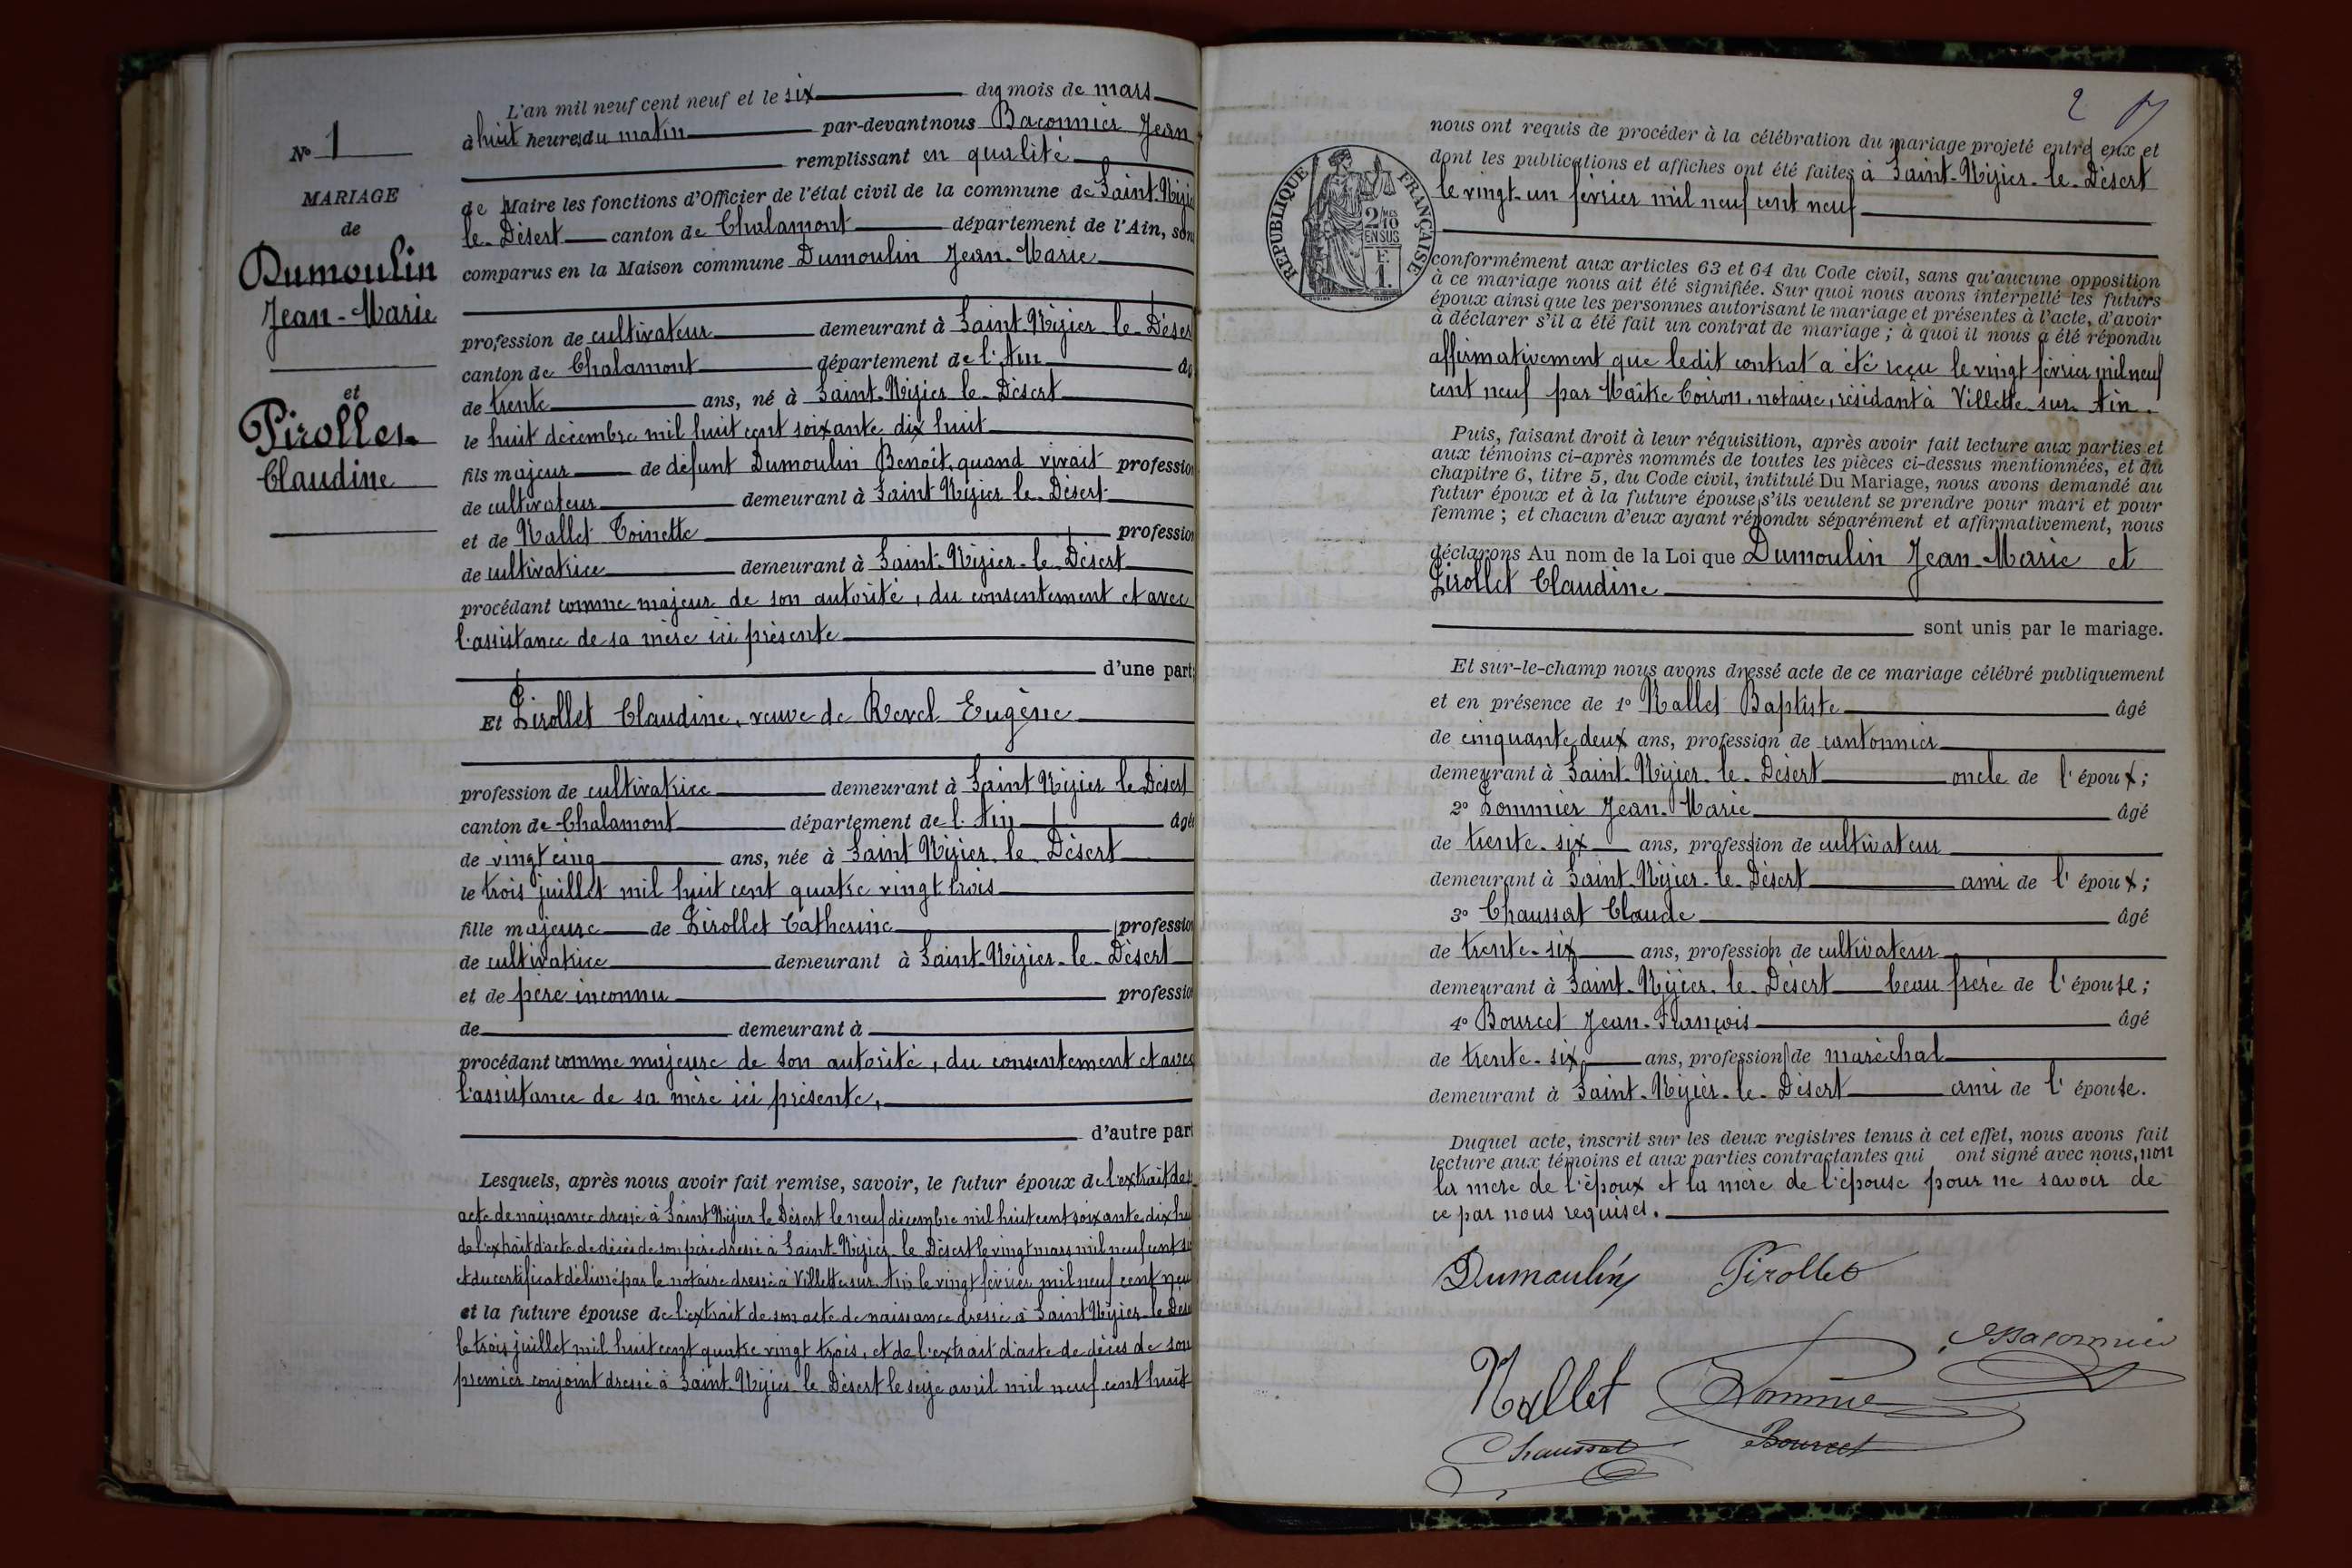 N° 1
MARIAGE
de
Dumoulin
Jean-Marie
et
Pirollet
Claudine
L'an mil neuf cent neuf et le six du mois de mars
à huit heures du matin par-devant nous Baconnier Jean
remplissant en qualité
de Maire les fonctions d'Officier de l'état civil de la commune de Saint-Nizier
le-Désert canton de Chalamont département de l'Ain, sont
comparus en la Maison commune Dumoulin Jean-Marie
profession de cultivateur demeurant à Saint-Nizier-le-Désert
canton de Chalamont département de l'Ain
de trente ans, né à Saint-Nizier-le-Désert
le huit décembre mil huit cent soixante dix huit
fils majeur de défunt Dumoulin Benoît, quand vivait profession
de cultivateur demeurant à Saint Nizier le Désert
et de Nallet Toinette profession
de cultivatrice demeurant à Saint-Nizier-le-Désert
procédant comme majeur de son autorité, du consentement et avec
l'assistance de sa mère ici présente
d'une part;
Et Pirollet Claudine, veuve de Revel Eugène
profession de cultivatrice demeurant à Saint Nizier le Désert
canton de Chalamont département de l'Ain âgée
de vingt cinq ans, née à Saint Nizier-le-Désert
le trois juillet mil huit cent quatre vingt trois
fille majeure de Pirollet Catherine profession
de cultivatrice demeurant à Saint-Nizier-le-Désert
et de père inconnu profession
de demeurant à
procédant comme majeure de son autorité, du consentement et avec
l'assistance de sa mère ici présente,
d'autre part
Lesquels, après nous avoir fait remise, savoir, le futur époux de l'extrait de
acte de naissance dressé à Saint Nizier le Désert le neuf décembre mil huit cent soixante dix huit
de l'extrait d'acte de décès de son père dressé à Saint-Nizier-le-Désert le vingt mars mil neuf cent
et du certificat délivré par le notaire dressé à Villette-sur-Ain le vingt février mil neuf cent neuf
et la future épouse de l'extrait de son acte de naissance dressé à Saint Nizier-le-Désert
le trois juillet mil huit cent quatre vingt trois, et de l'extrait d'acte de décès de son
premier conjoint dressé à Saint-Nizier-le-Désert le seize avril mil neuf cent huit
2
RÉPUBLIQUE FRANÇAISE
2/10 MES
EN SUS
F.
1.
nous ont requis de procéder à la célébration du mariage projeté entre eux et
dont les publications et affiches ont été faites à Saint-Nizier-le-Désert
le vingt-un février mil neuf cent neuf
conformément aux articles 63 et 64 du Code civil, sans qu'aucune opposition
à ce mariage nous ait été signifiée. Sur quoi nous avons interpellé les futurs
époux ainsi que les personnes autorisant le mariage et présentes à l'acte, d'avoir
à déclarer s'il a été fait un contrat de mariage; à quoi il nous a été répondu
affirmativement que ledit contrat a été reçu le vingt février mil neuf
cent neuf par Maître Coiron, notaire, résidant à Villette-sur-Ain.
Puis, faisant droit à leur réquisition, après avoir fait lecture aux parties et
aux témoins ci-après nommés de toutes les pièces ci-dessus mentionnées, et du
chapitre 6, titre 5, du Code civil, intitulé Du Mariage, nous avons demandé au
futur époux et à la future épouse s'ils veulent se prendre pour mari et pour
femme; et chacun d'eux ayant répondu séparément et affirmativement, nous
déclarons Au nom de la Loi que Dumoulin Jean-Marie et
Pirollet Claudine
sont unis par le mariage.
Et sur-le-champ nous avons dressé acte de ce mariage célébré publiquement
et en présence de 1° Nallet Baptiste âgé
de cinquante deux ans, profession de cantonnier
demeurant à Saint-Nizier-le-Désert oncle de l'époux;
2° Pommier Jean-Marie âgé
de trente-six ans, profession de cultivateur
demeurant à Saint-Nizier-le-Désert ami de l'époux;
3° Chaussat Claude âgé
de trente-six ans, profession de cultivateur
demeurant à Saint-Nizier-le-Désert beau frère de l'épouse;
4° Bourcet Jean-François âgé
de trente-six ans, profession de maréchal
demeurant à Saint-Nizier-le-Désert ami de l'épouse.
Duquel acte, inscrit sur les deux registres tenus à cet effet, nous avons fait
lecture aux témoins et aux parties contractantes qui ont signé avec nous, non
la mère de l'époux et la mère de l'épouse pour ne savoir de
ce par nous requises.
Dumoulin Pirollet
Baconnier
Nallet Pommier
Chaussat Bourcet